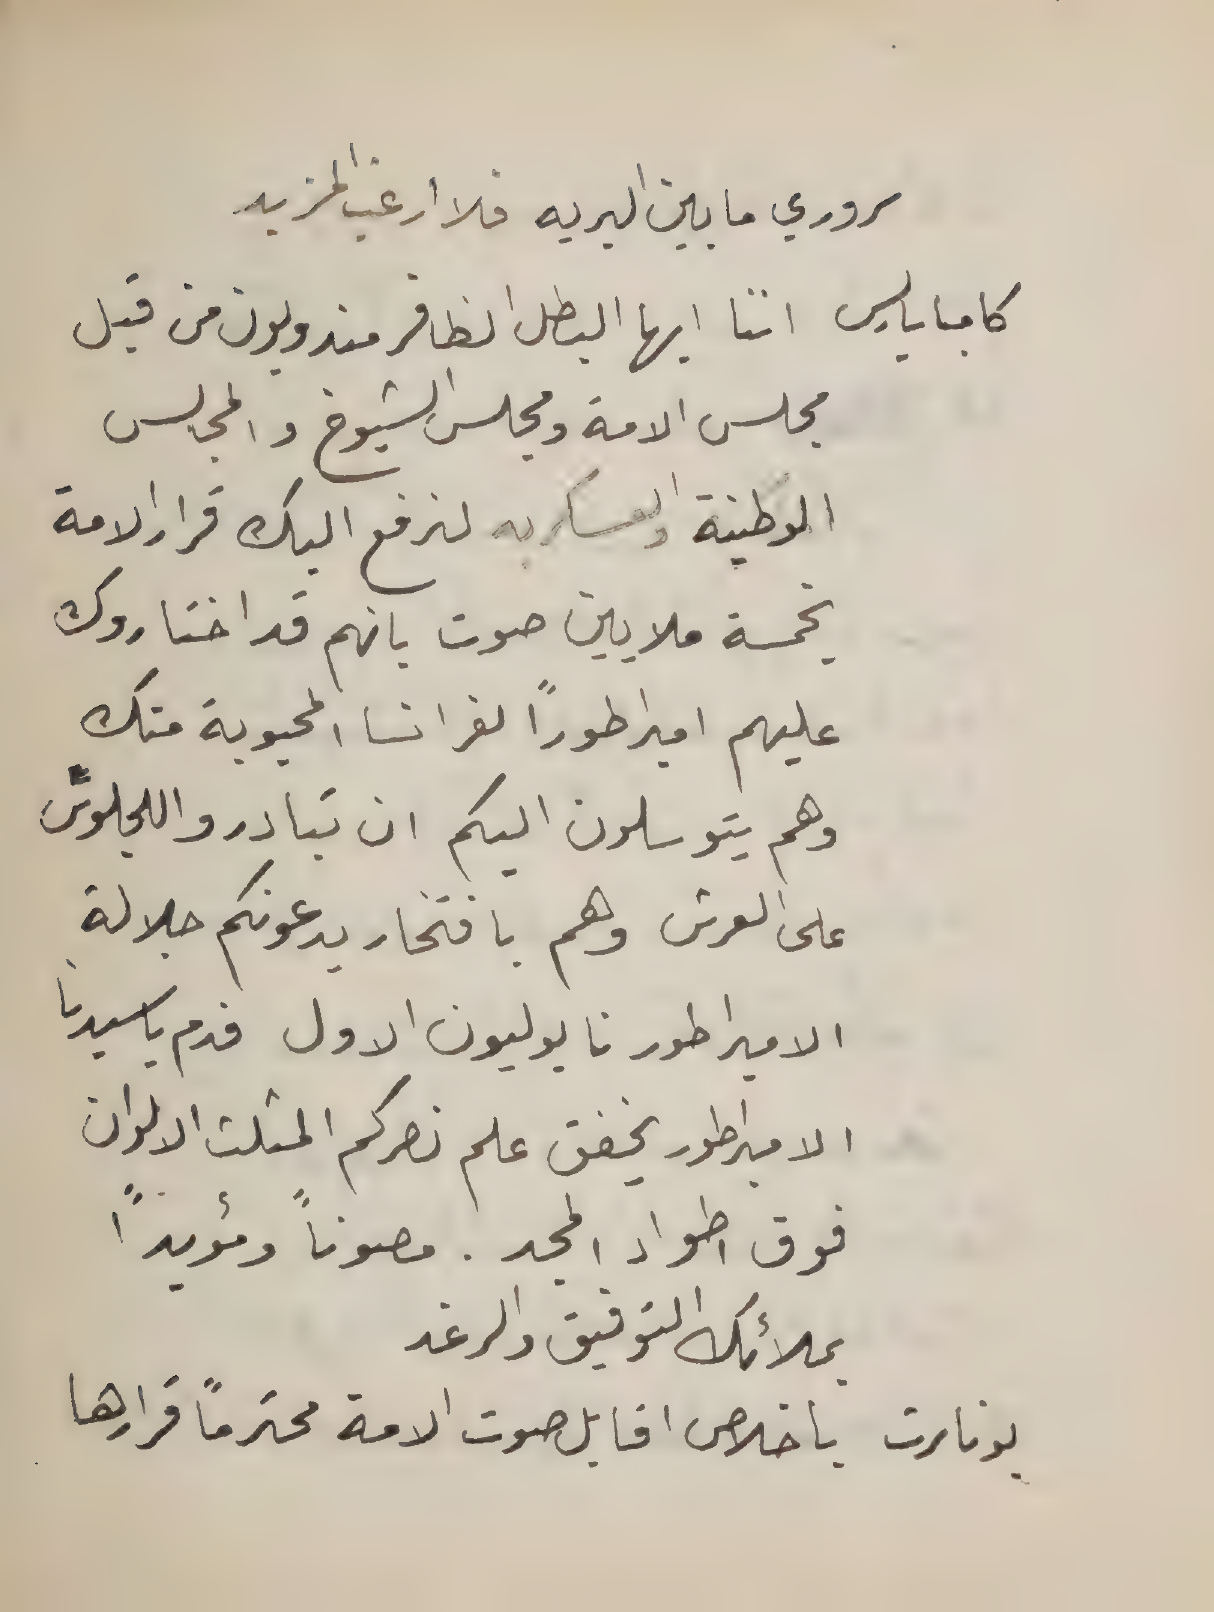 سروري ما بين البريه فلا ارغب المزيد
كامباباريس اننا ايها البطل الظافر مندوبون من قبل
مجلس الامة ومجلس الشيوخ والمجالس
الوطنية والعسكريه لنرفع اليك قرار الامة
بخمسة ملايين صوت بانهم قد اختاروك
عليهم امبراطوراً لفرانسا المحبوبة منك
وهم يتوسلون اليكم ان تبادروا للجلوس
على العرش وهم بافتخار يدعونكم جلالة
الامبراطور نابوليون الاول فدم ياسيدنا
الامبراطور يخفق علم نصركم المثلث الالوان
فوق اطواد المجد . مصوناً ومؤيداً
بملائك التوفيق والرغد
بونابرت باخلاص اقابل صوت الامة محترماً قرارها